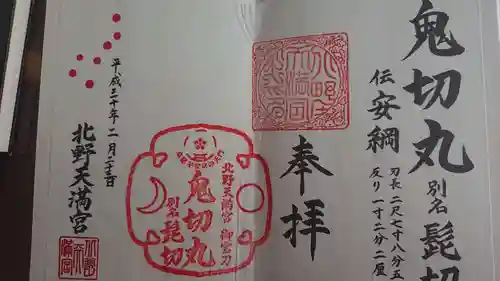 鬼切丸 別名 髭切
伝 安綱
刃長 二尺七寸八分五
反り 一寸二分二厘
奉拝
北野天満宮 御宝刀
鬼切丸
別名 髭切
平成三十年二月二十三日
北野天満宮